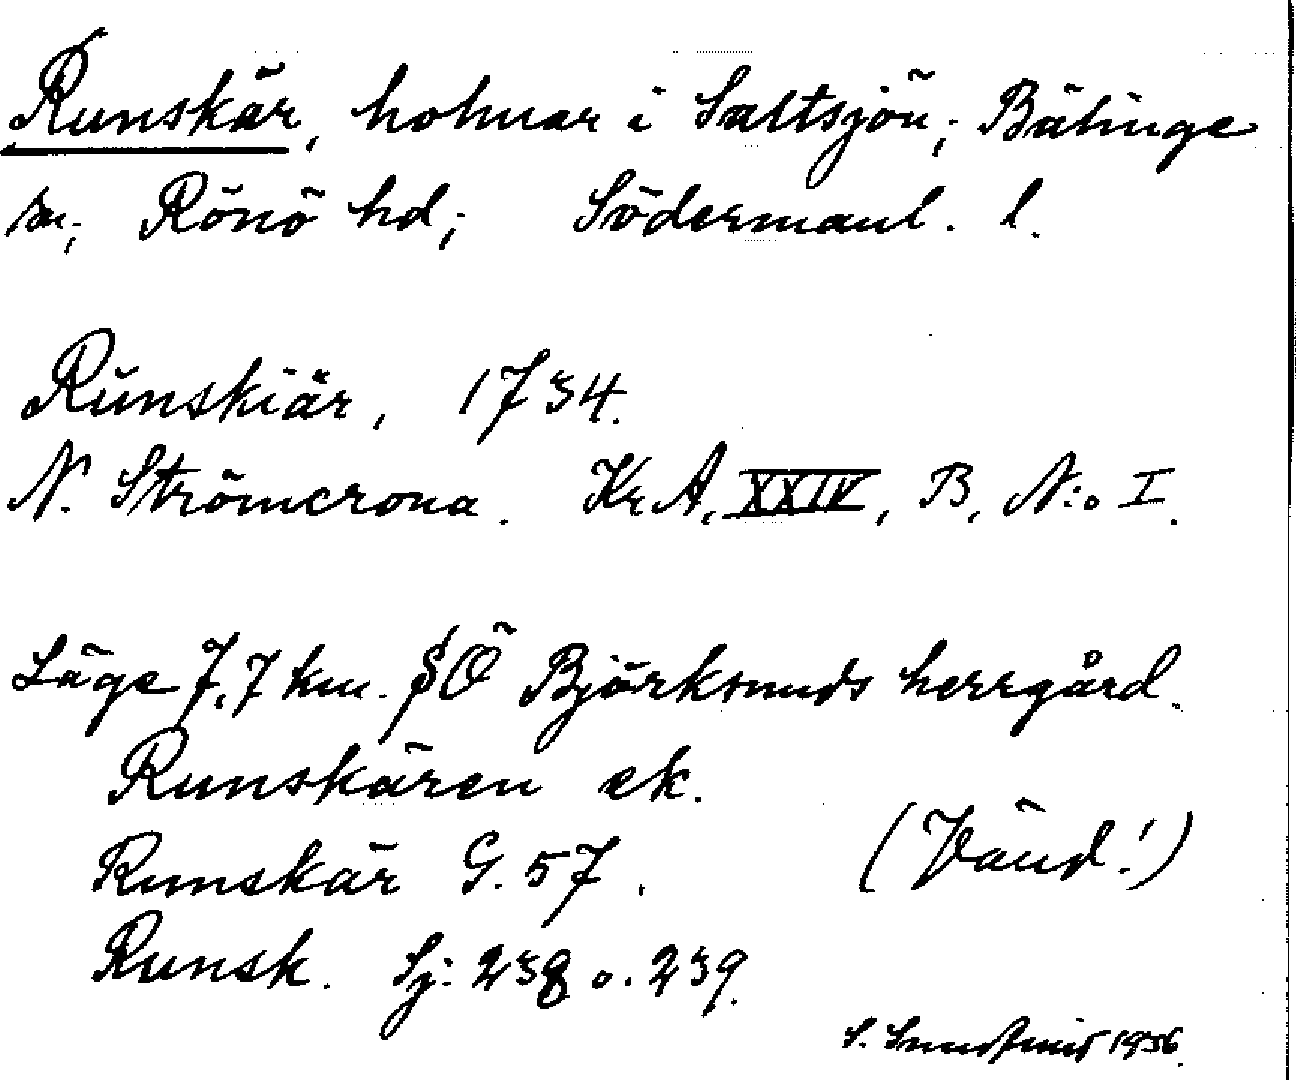 Runskär, holmar i Saltsjön; Bälinge
sn; Rönö hd; Södermanl. l.
Runskiär, 1734.
N. Strömcrona. Kr A, XXIV, B, N:o I.
Läge 7,7 km. SÖ Björksunds herrgård.
Runskären ek.
Runskär G. 57. (Vänd!)
Runsk. Sj: 238 o. 239.
S. 1936.